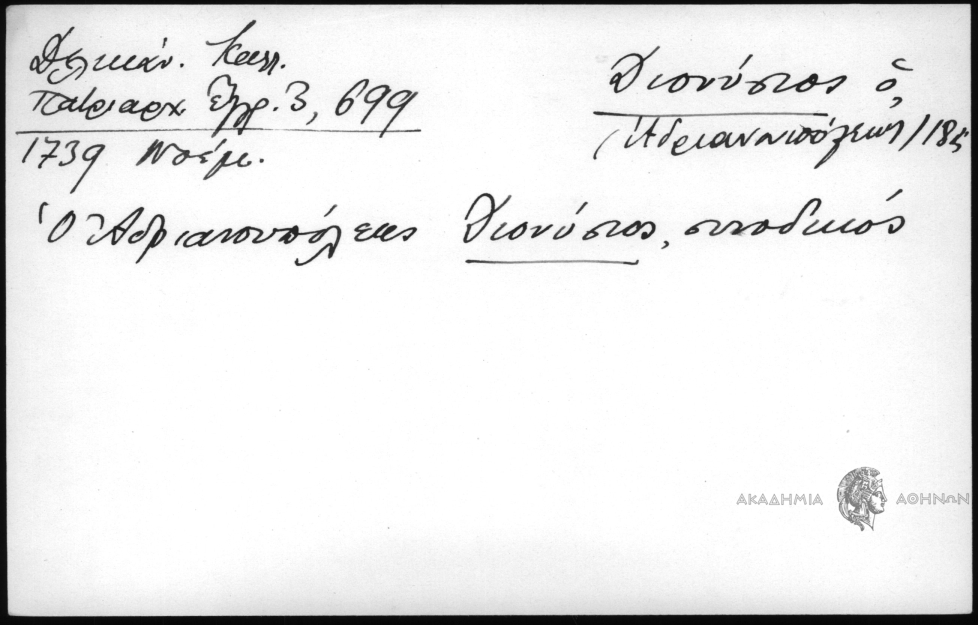 Δελικάν. Καλλ.
Πατριαρχ Ἔγγρ. 3, 699
1739 Νοέμ.
Διονύσιος ὁ,
(Ἀδριανουπόλεως) 185
Ὁ Ἀδριανουπόλεως Διονύσιος, συνοδικός
ΑΚΑΔΗΜΙΑ ΑΘΗΝΩΝ